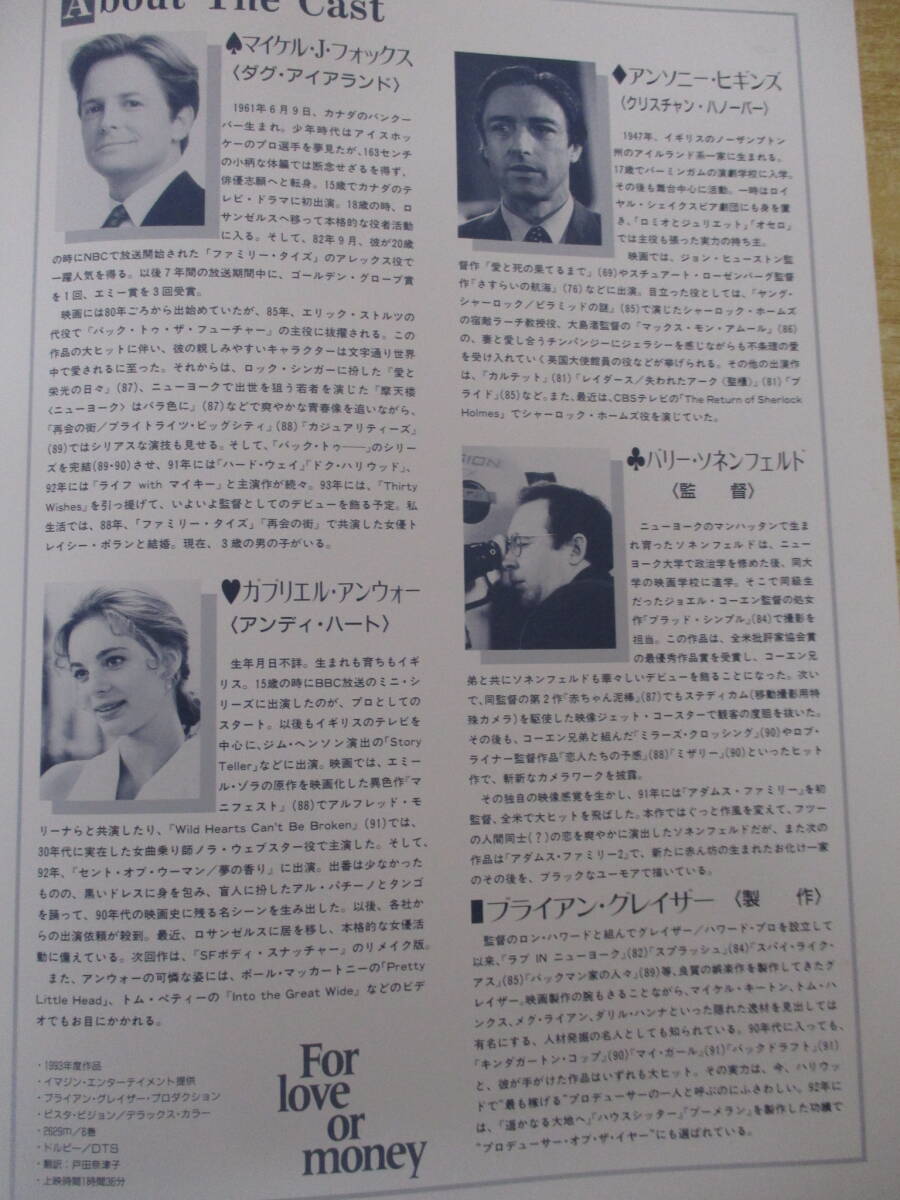 About The Cast
♠マイケル・J・フォックス
〈ダグ・アイアランド〉
1961年6月9日、カナダのバンクー
バー生まれ。少年時代はアイスホッ
ケーのプロ選手を夢見たが、163センチ
の小柄な体軀では断念せざるを得ず、
俳優志願へと転身。15歳でカナダのテ
レビ・ドラマに初出演。18歳の時、ロ
サンゼルスへ移って本格的な役者活動
に入る。そして、82年9月、彼が20歳
の時にNBCで放送開始された「ファミリー・タイズ」のアレックス役で
一躍人気を得る。以後7年間の放送期間中に、ゴールデン・グローブ賞
を1回、エミー賞を3回受賞。
映画には80年ごろから出始めていたが、85年、エリック・ストルツの
代役で『バック・トゥ・ザ・フューチャー』の主役に抜擢される。この
作品の大ヒットに伴い、彼の親しみやすいキャラクターは文字通り世界
中で愛されるに至った。それからは、ロック・シンガーに扮した『愛と
栄光の日々』(87)、ニューヨークで出世を狙う若者を演じた『摩天楼
〈ニューヨーク〉はバラ色に』(87)などで爽やかな青春像を追いながら、
『再会の街/ブライトライツ・ビッグシティ』(88)『カジュアリティーズ』
(89)ではシリアスな演技も見せる。そして、『バック・トゥ——』のシリー
ズを完結(89・90)させ、91年には『ハード・ウェイ』『ドク・ハリウッド』、
92年には『ライフ with マイキー』と主演作が続々。93年には、『Thirty
Wishes』を引っ提げて、いよいよ監督としてのデビューを飾る予定。私
生活では、88年、「ファミリー・タイズ」『再会の街』で共演した女優ト
レイシー・ポランと結婚。現在、3歳の男の子がいる。
♥ガブリエル・アンウォー
〈アンディ・ハート〉
生年月日不詳。生まれも育ちもイギ
リス。15歳の時にBBC放送のミニ・シ
リーズに出演したのが、プロとしての
スタート。以後もイギリスのテレビを
中心に、ジム・ヘンソン演出の「Story
Teller」などに出演。映画では、エミー
ル・ゾラの原作を映画化した異色作『マ
ニフェスト』(88)でアルフレッド・モ
リーナらと共演したり、『Wild Hearts Can't Be Broken』(91)では、
30年代に実在した女曲乗り師ノラ・ウェブスター役で主演した。そして、
92年、『セント・オブ・ウーマン/夢の香り』に出演。出番は少なかった
ものの、黒いドレスに身を包み、盲人に扮したアル・パチーノとタンゴ
を踊って、90年代の映画史に残る名シーンを生み出した。以後、各社か
らの出演依頼が殺到。最近、ロサンゼルスに居を移し、本格的な女優活
動に備えている。次回作は、『SFボディ・スナッチャー』のリメイク版。
また、アンウォーの可憐な姿には、ポール・マッカートニーの「Pretty
Little Head」、トム・ペティーの「Into the Great Wide」などのビデ
オでもお目にかかれる。
・1993年度作品
・イマジン・エンターテイメント提供
・ブライアン・グレイザー・プロダクション
・ビスタ・ビジョン/デラックス・カラー
・2629m/6巻
・ドルビー/DTS
・翻訳:戸田奈津子
・上映時間1時間36分
For
love
or
money
♦アンソニー・ヒギンズ
〈クリスチャン・ハノーバー〉
1947年、イギリスのノーザンプトン
州のアイルランド系一家に生まれる。
17歳でバーミンガムの演劇学校に入学。
その後も舞台中心に活動。一時はロイ
ヤル・シェイクスピア劇団にも身を置
き、「ロミオとジュリエット」「オセロ」
では主役も張った実力の持ち主。
映画では、ジョン・ヒューストン監
督作『愛と死の果てるまで』(69)やスチュアート・ローゼンバーグ監督
作『さすらいの航海』(76)などに出演。目立った役としては、『ヤング・
シャーロック/ピラミッドの謎』(85)で演じたシャーロック・ホームズ
の宿敵ラーチ教授役、大島渚監督の『マックス・モン・アムール』(86)
の、妻と愛し合うチンパンジーにジェラシーを感じながらも不条理の愛
を受け入れていく英国大使館員の役などが挙げられる。その他の出演作
は、『カルテット』(81)『レイダース/失われたアーク《聖櫃》』(81)『ブ
ライド』(85)など。また、最近は、CBSテレビの「The Return of Sherlock
Holmes」でシャーロック・ホームズ役を演じていた。
♣バリー・ソネンフェルド
〈監 督〉
ニューヨークのマンハッタンで生ま
れ育ったソネンフェルドは、ニュー
ヨーク大学で政治学を修めた後、同大
学の映画学校に進学。そこで同級生
だったジョエル・コーエン監督の処女
作『ブラッド・シンプル』(84)で撮影を
担当。この作品は、全米批評家協会賞
の最優秀作品賞を受賞し、コーエン兄
弟と共にソネンフェルドも華々しいデビューを飾ることになった。次い
で、同監督の第2作『赤ちゃん泥棒』(87)でもステディカム(移動撮影用特
殊カメラ)を駆使した映像ジェット・コースターで観客の度胆を抜いた。
その後も、コーエン兄弟と組んだ『ミラーズ・クロッシング』(90)やロブ・
ライナー監督作品『恋人たちの予感』(88)『ミザリー』(90)といったヒット
作で、斬新なカメラワークを披露。
その独自の映像感覚を生かし、91年には『アダムス・ファミリー』を初
監督、全米で大ヒットを飛ばした。本作ではぐっと作風を変えて、フツー
の人間同士(?)の恋を爽やかに演出したソネンフェルドだが、また次の
作品は『アダムス・ファミリー2』で、新たに赤ん坊の生まれたお化け一家
のその後を、ブラックなユーモアで描いている。
ブライアン・グレイザー〈製 作〉
監督のロン・ハワードと組んでグレイザー/ハワード・プロを設立して
以来、『ラブ IN ニューヨーク』(82)『スプラッシュ』(84)『スパイ・ライク・
アス』(85)『バックマン家の人々』(89)等、良質の娯楽作を製作してきたグ
レイザー。映画製作の腕もさることながら、マイケル・キートン、トム・ハ
ンクス、メグ・ライアン、ダリル・ハンナといった隠れた逸材を見出しては
有名にする、人材発掘の名人としても知られている。90年代に入っても、
『キンダガートン・コップ』(90)『マイ・ガール』(91)『バックドラフト』(91)
と、彼が手がけた作品はいずれも大ヒット。その実力は、今、ハリウッ
ドで“最も稼げる”プロデューサーの一人と呼ぶのにふさわしい。92年に
は、『遥かなる大地へ』『ハウスシッター』『ブーメラン』を製作した功績で
“プロデューサー・オブ・ザ・イヤー”にも選ばれている。